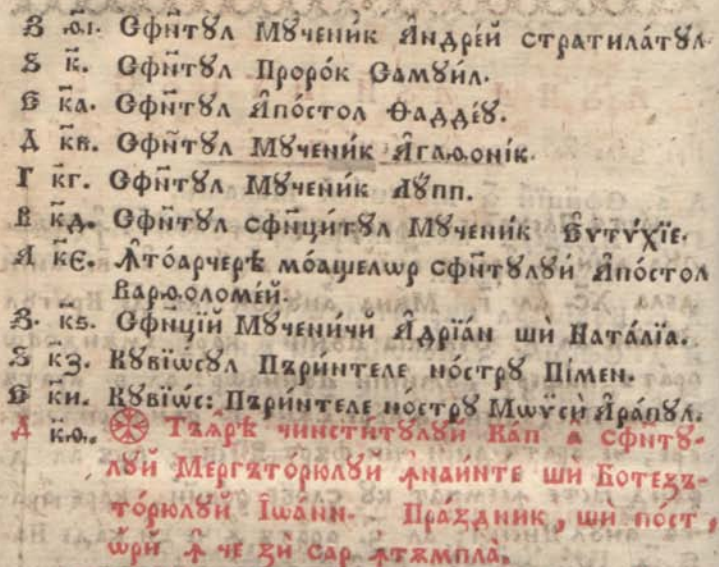 З ѳ҃і. Сфн́тꙋл Мꙋчени́к А҆ндре́й стратила́тꙋл
Ѕ к҃. Сфн́тꙋл Проро́к Самꙋи́л.
Є к҃а. Сфн́тꙋл А҆по́стол Ѳадде́ꙋ.
Д к҃в. Сфн́тꙋл Мꙋчени́к А҆гаѳоні́к.
Г к҃г. Сфн́тꙋл Мꙋчени́к Лꙋ́пп.
В к҃д. Сфн́тꙋл сфнци́тꙋл Мꙋчени́к Є҆ѵтѵ́хїе.
А к҃є. Ꙟ҆то́арчерѣ мо́ащелѡр сфн́тꙋлꙋй А҆по́стол
Варѳоломе́й.
З. к҃ѕ. Сфн́ции Мꙋчени́чй А҆дрїа́н шѝ Ната́лїа.
Ѕ к҃з. Кꙋвїѡ́сꙋл Пъри́нтеле но́стрꙋ Пі́мен.
Є к҃и. Кꙋвїѡ́с: Пъри́нтеле но́стрꙋ Мѡѷсѝ А҆ра́пꙋл.
Д к҃ѳ. Тъꙗ҆́рѣ чинсти́тꙋлꙋй Ка́п а҆ сфн́тꙋ-
лꙋй Мергъто́рюлꙋй ꙟ҆наи́нте шѝ Ботезъ-
то́рюлꙋй І҆ѡа́нн. Пра́здник, шѝ по́ст,
ѡ҆рѝ ꙟ҆ че зѝ сар ꙟ҆тѫмпла̀.